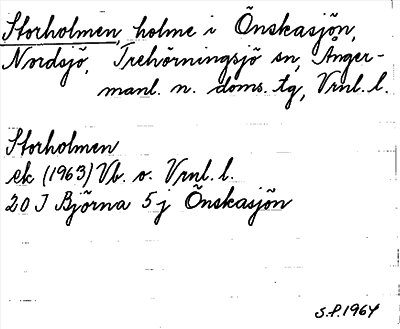 Storholmen, holme i Önskasjön,
Nordsjö, Trehörningsjö sn, Ånger-
manl. n. doms. tg, Vrnl. l.
Storholmen
ek (1963) Vb. o. Vrnl. l.
20 I Björna 5j Önskasjön
S.P. 1964